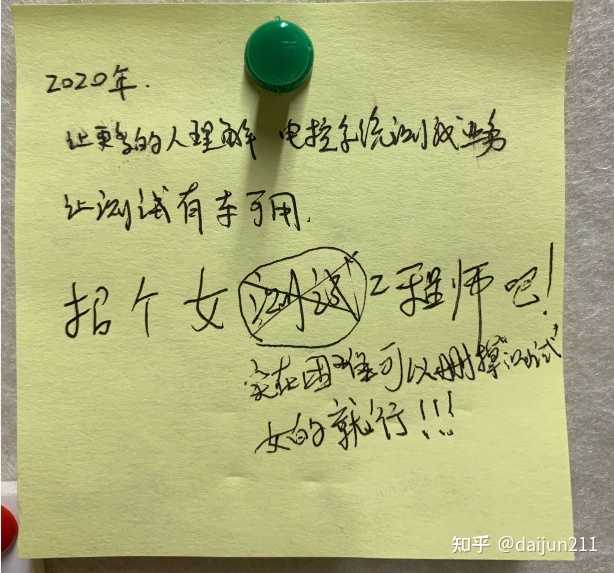 2020年.
让更多的人理解 电控系统测试业务
让测试有车可用.
招个女测试工程师吧!
实在困难可以删掉“测试”
女的就行!!!
知乎 @daijun211